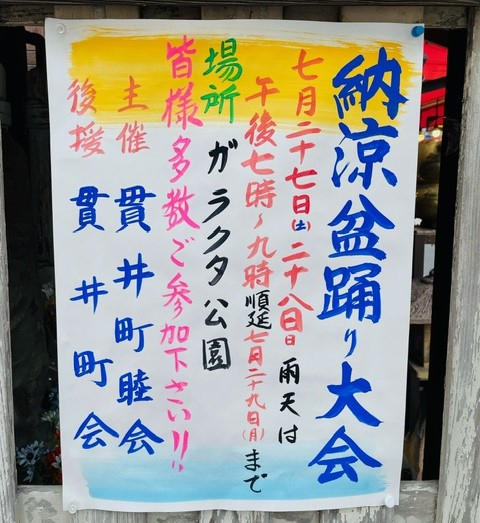 納涼盆踊り大会
七月二十七日(土)二十八日日 雨天は
午後七時〜九時 順延七月二十九日(月)まで
場所 ガラクタ公園
皆様多数ご参加下さい!!
主催 貫井町睦会
後援 貫井町会